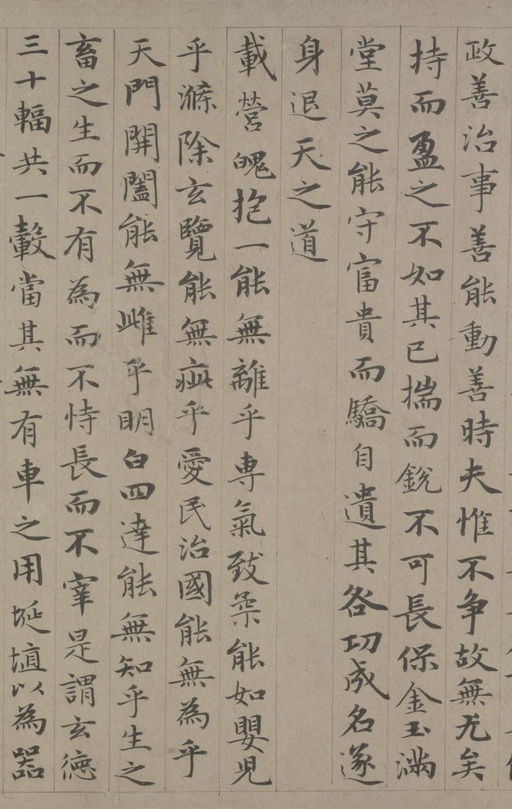 政善治事善能動善時夫惟不爭故無尤矣
持而盈之不如其已揣而銳不可長保金玉滿
堂莫之能守富貴而驕自遺其咎功成名遂
身退天之道
載營魄抱一能無離乎専氣致柔能如嬰兒
乎滌除玄覽能無疵乎愛民治國能無為乎
天門開闔能無雌乎明白四達能無知乎生之
畜之生而不有為而不恃長而不宰是謂玄德
三十輻共一轂當其無有車之用埏埴以為器